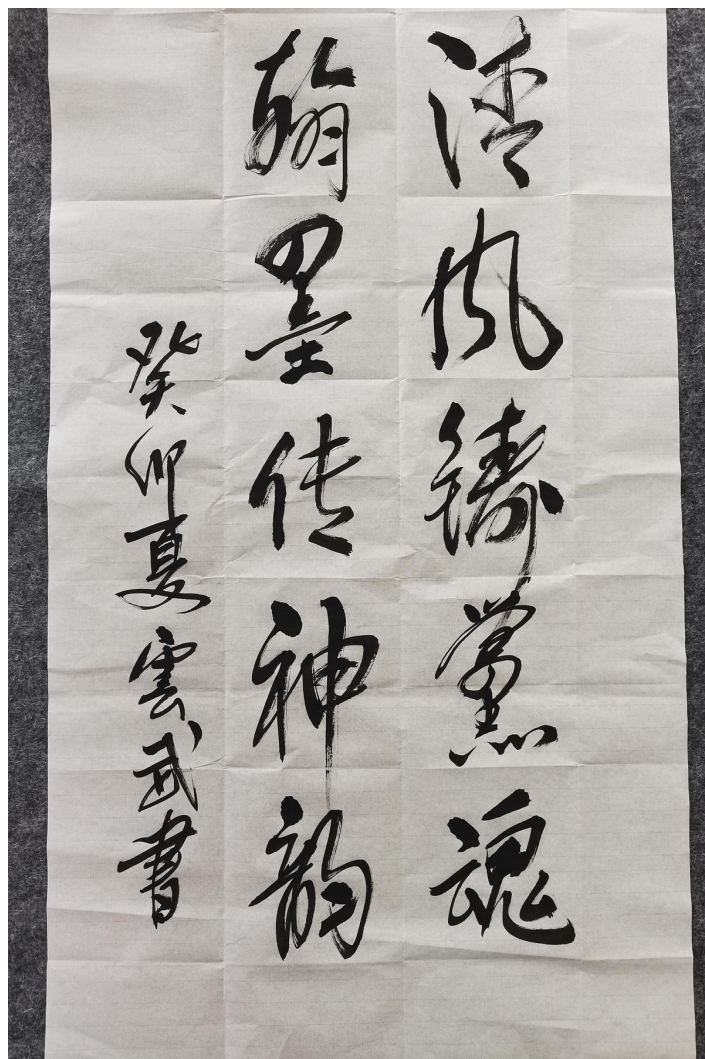 清风铸黨魂
翰墨传神韵
癸卯夏雲武書